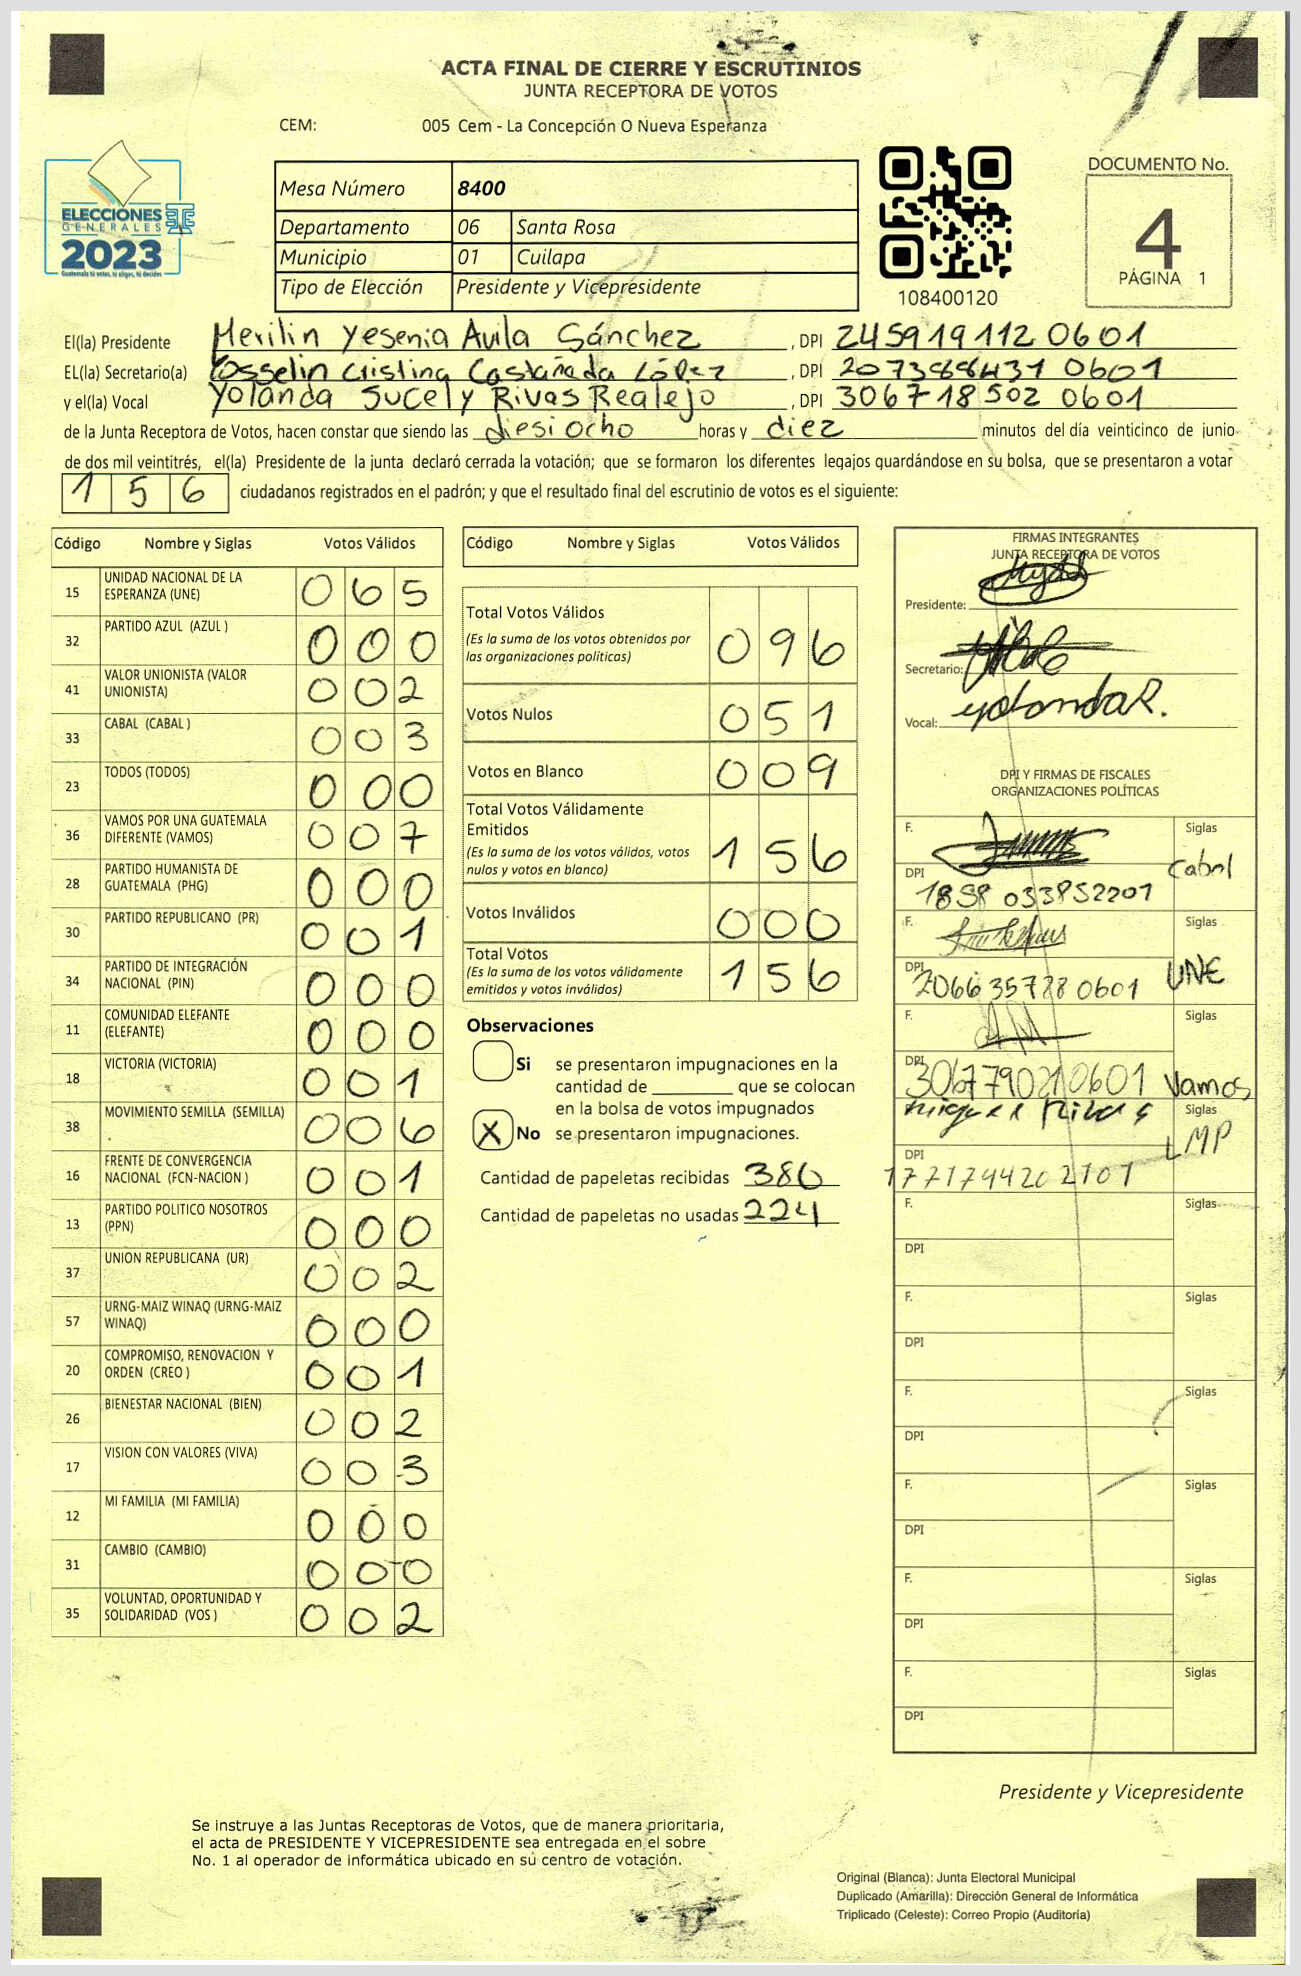 ACTA FINAL DE CIERRE Y ESCRUTINIOS
JUNTA RECEPTORA DE VOTOS
CEM: 005 Cem - La Concepción O Nueva Esperanza
ELECCIONES
GENERALES
2023
Guatemala tú votas, tú eliges, tú decides
Mesa Número 8400
Departamento 06 Santa Rosa
Municipio 01 Cuilapa
Tipo de Elección Presidente y Vicepresidente
108400120
DOCUMENTO No.
4
PÁGINA 1
El(la) Presidente Merilin Yesenia Avila Sánchez, DPI 245919112 0601
EL(la) Secretario(a) Yosselin Cristina Castañada López, DPI 0601
y el(la) Vocal Yolanda Sucely Rivas Realejo, DPI 306718502 0601
de la Junta Receptora de Votos, hacen constar que siendo las diesiocho horas y diez minutos del día veinticinco de junio
de dos mil veintitrés, el(la) Presidente de la junta declaró cerrada la votación; que se formaron los diferentes legajos guardándose en su bolsa, que se presentaron a votar
156 ciudadanos registrados en el padrón; y que el resultado final del escrutinio de votos es el siguiente:
Código Nombre y Siglas Votos Válidos
15 UNIDAD NACIONAL DE LA ESPERANZA (UNE) 065
32 PARTIDO AZUL (AZUL ) 000
41 VALOR UNIONISTA (VALOR UNIONISTA) 002
33 CABAL (CABAL ) 003
23 TODOS (TODOS) 000
36 VAMOS POR UNA GUATEMALA DIFERENTE (VAMOS) 007
28 PARTIDO HUMANISTA DE GUATEMALA (PHG) 000
30 PARTIDO REPUBLICANO (PR) 001
34 PARTIDO DE INTEGRACIÓN NACIONAL (PIN) 000
11 COMUNIDAD ELEFANTE (ELEFANTE) 000
18 VICTORIA (VICTORIA) 001
38 MOVIMIENTO SEMILLA (SEMILLA) 006
16 FRENTE DE CONVERGENCIA NACIONAL (FCN-NACION ) 001
13 PARTIDO POLITICO NOSOTROS (PPN) 000
37 UNION REPUBLICANA (UR) 002
57 URNG-MAIZ WINAQ (URNG-MAIZ WINAQ) 000
20 COMPROMISO, RENOVACION Y ORDEN (CREO ) 001
26 BIENESTAR NACIONAL (BIEN) 002
17 VISION CON VALORES (VIVA) 003
12 MI FAMILIA (MI FAMILIA) 000
31 CAMBIO (CAMBIO) 000
35 VOLUNTAD, OPORTUNIDAD Y SOLIDARIDAD (VOS ) 002
Código Nombre y Siglas Votos Válidos
Total Votos Válidos
(Es la suma de los votos obtenidos por
las organizaciones políticas) 096
Votos Nulos 051
Votos en Blanco 009
Total Votos Válidamente
Emitidos
(Es la suma de los votos válidos, votos
nulos y votos en blanco) 156
Votos Inválidos 000
Total Votos
(Es la suma de los votos válidamente
emitidos y votos inválidos) 156
Observaciones
Si se presentaron impugnaciones en la
cantidad de ________ que se colocan
en la bolsa de votos impugnados
X No se presentaron impugnaciones.
Cantidad de papeletas recibidas 380
Cantidad de papeletas no usadas 224
FIRMAS INTEGRANTES
JUNTA RECEPTORA DE VOTOS
Presidente:
Secretario:
Vocal: yolandaR.
DPI Y FIRMAS DE FISCALES
ORGANIZACIONES POLÍTICAS
F. Siglas
Cabal
DPI 1858 033852201
F. Siglas
DPI 0601 UNE
F. AM Siglas
DPI 0601 Vamos
F. Siglas
LMP
DPI 1771794202101
F. Siglas
DPI
F. Siglas
DPI
F. Siglas
DPI
F. Siglas
DPI
F. Siglas
DPI
F. Siglas
DPI
Presidente y Vicepresidente
Se instruye a las Juntas Receptoras de Votos, que de manera prioritaria,
el acta de PRESIDENTE Y VICEPRESIDENTE sea entregada en el sobre
No. 1 al operador de informática ubicado en su centro de votación.
Original (Blanca): Junta Electoral Municipal
Duplicado (Amarilla): Dirección General de Informática
Triplicado (Celeste): Correo Propio (Auditoría)